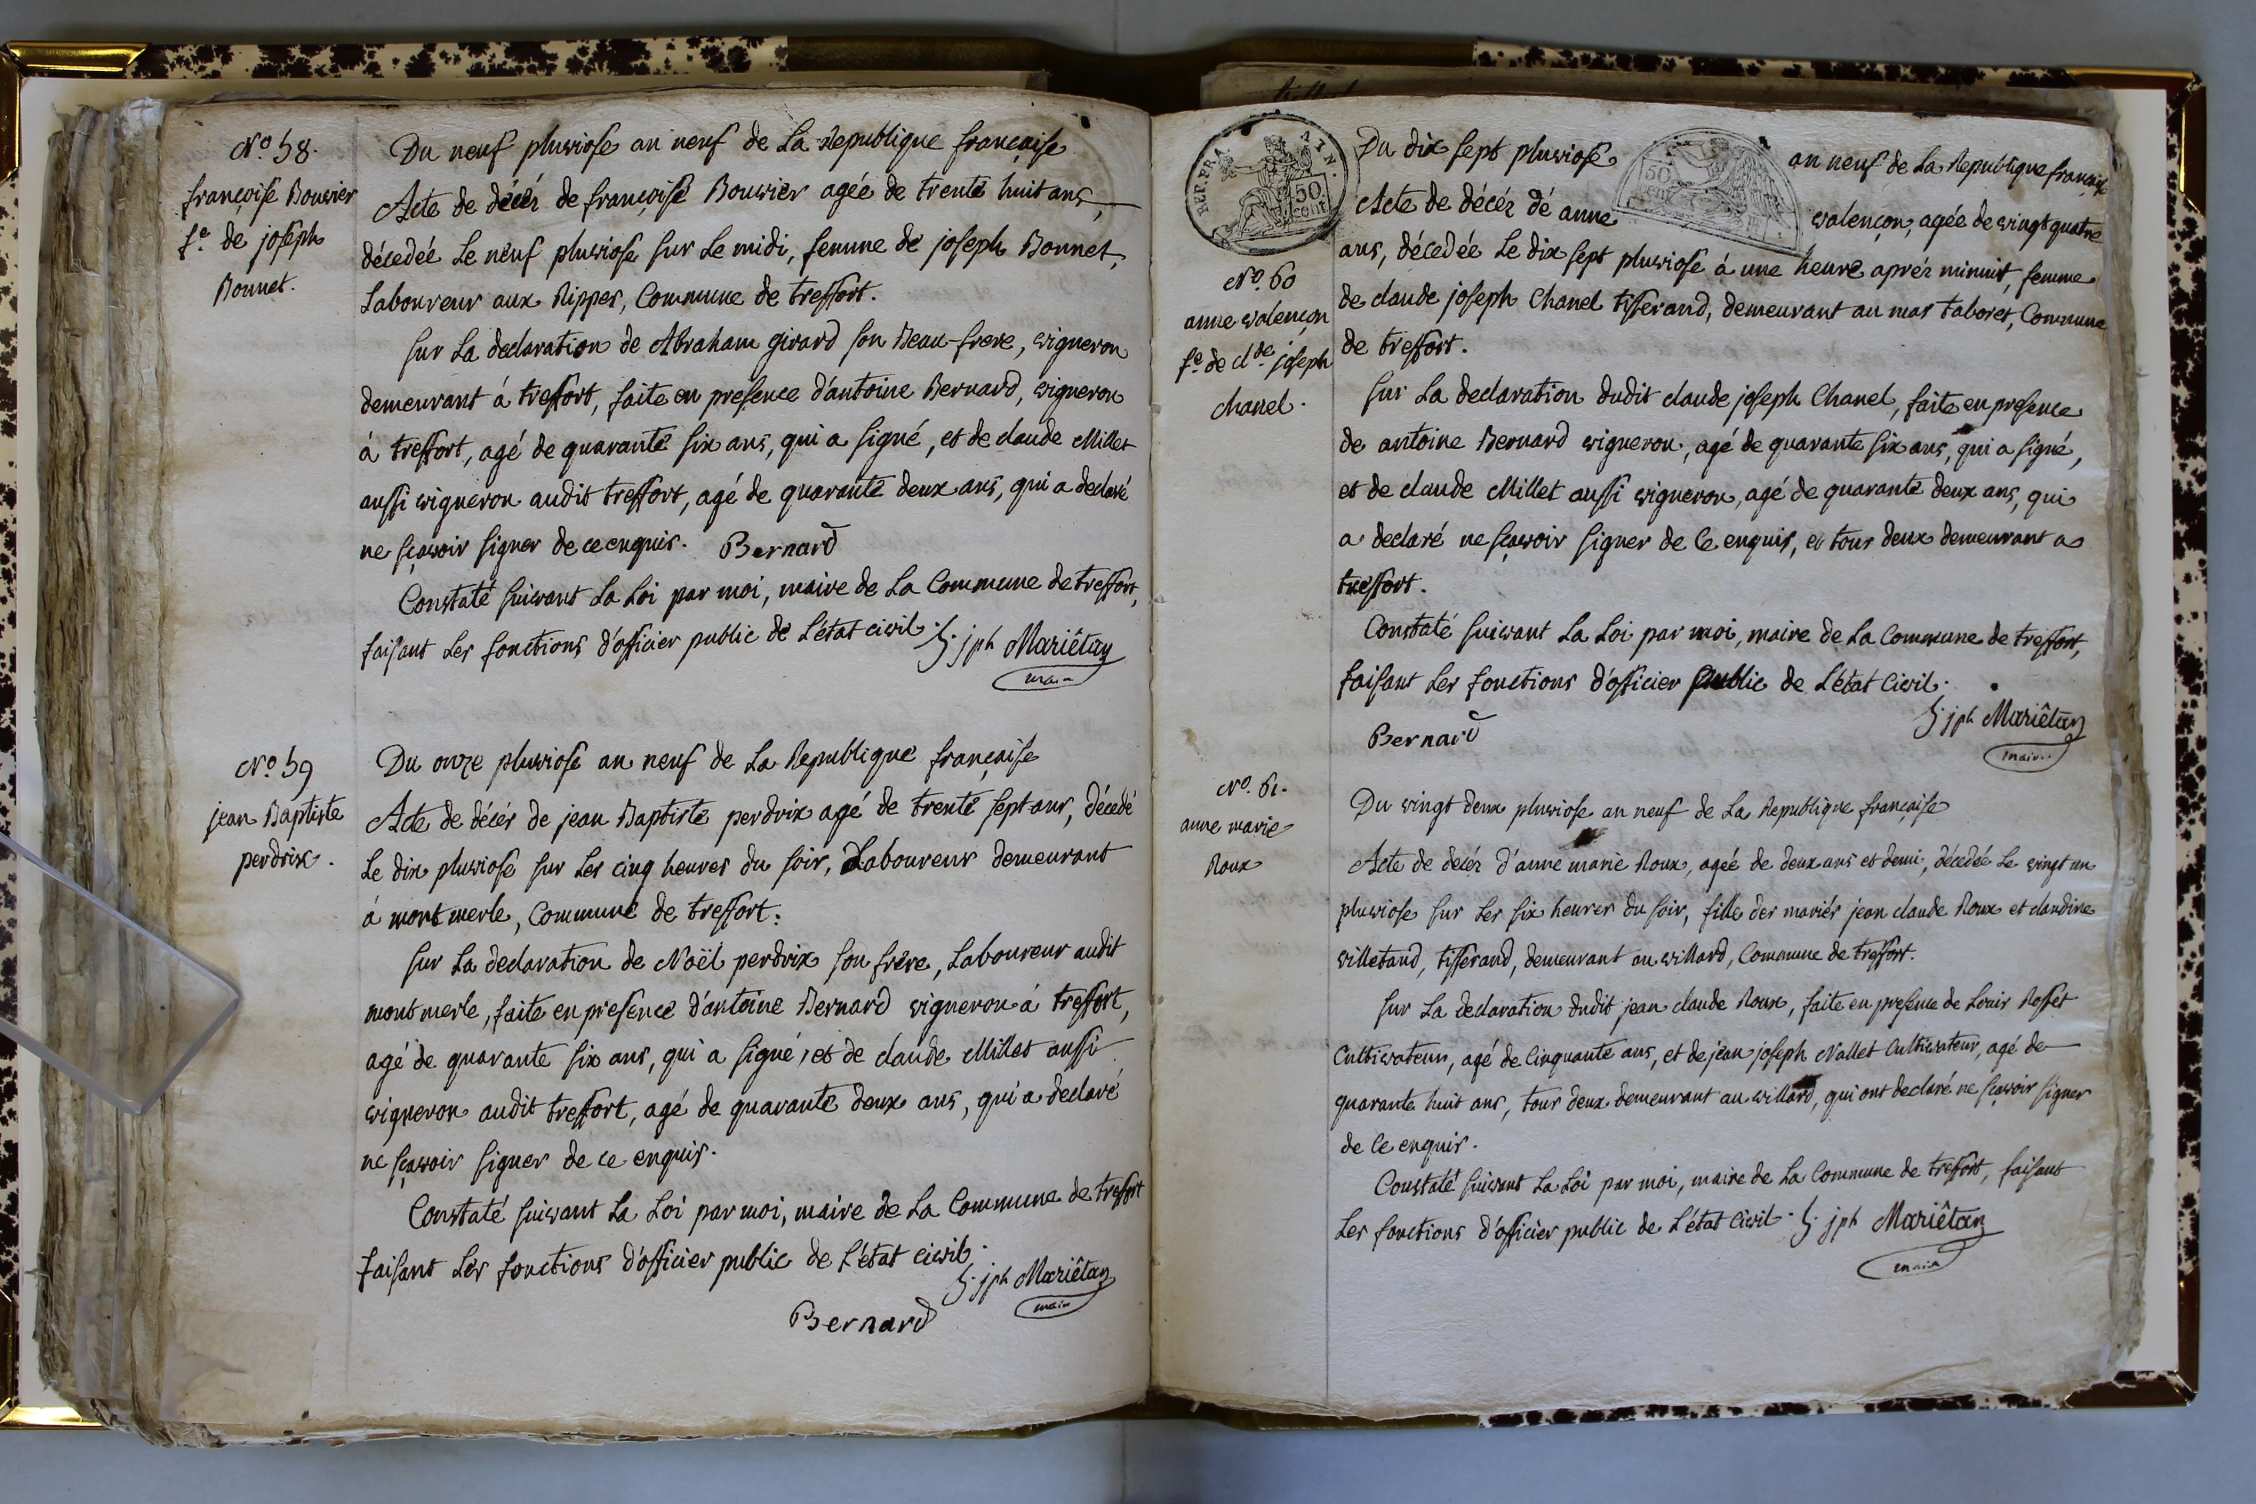 No. 58.
françoise Bouvier
fe. de joseph
Bonnet.
Du neuf pluviose an neuf de La Republique françoise
Acte de décér de françoise Bouvier agée de trente huit ans,
décedée Le neuf pluviose sur Le midi, femme de joseph Bonnet,
Laboureur aux Rippes, Commune de treffort.
sur La declaration de Abraham girard son Beau-frere, vigneron
demeurant á treffort, faite en presence d'antoine Bernard, vigneron
á treffort, agé de quarante six ans, qui a signé, et de claude Millet
aussi vigneron audit treffort, agé de quarante deux ans, qui a declaré
ne sçavoir signer de ce enquis. Bernard
Constaté suivant La Loi par moi, maire de La Commune de treffort,
faisant Les fonctions d'officier public de L'état civil. S. jph Mariêtan
maire
No. 59
jean Baptiste
perdrix.
Du onze pluviose an neuf de La Republique françoise
Acte de décér de jean Baptiste perdrix agé de trente sept ans, décedé
Le dix pluviose sur Les cinq heures du soir, Laboureur demeurant
á mont merle, Commune de treffort.
sur La declaration de Noël perdrix son frère, Laboureur audit
mont merle, faite en presence d'antoine Bernard vigneron á treffort,
agé de quarante six ans, qui a signé, et de claude Millet aussi
vigneron audit treffort, agé de quarante deux ans, qui a declaré
ne sçavoir signer de ce enquis.
Constaté suivant La Loi par moi, maire de La Commune de treffort
faisant Les fonctions d'officier public de L'état civil.
S. jph Mariêtan
maire
Bernard
REP. FRA. 50 cent
50 cent
No. 60
anne valençon
fe. de clde. joseph
chanel.
Du dix sept pluviose an neuf de La Republique françoise
Acte de décér dé anne valençon, agée de vingt quatre
ans, décedée Le dix sept pluviose á une heure aprér minuit, femme
de claude joseph Chanel tisserand, demeurant au mas taboret, Commune
de treffort.
sur La declaration dudit claude joseph Chanel, faite en presence
de antoine Bernard vigneron, agé de quarante six ans, qui a signé,
et de claude Millet aussi vigneron, agé de quarante deux ans, qui
a declaré ne sçavoir signer de Ce enquis, et tous deux demeurant a
treffort.
Constaté suivant La Loi par moi, maire de La Commune de treffort,
faisant Les fonctions d'officier public de L'état Civil.
S. jph Mariêtan
maire
Bernard
No. 61.
anne marie
Roux
Du vingt deux pluviose an neuf de La Republique françoise
Acte de decér d'anne marie Roux, agée de deux ans et demi, décedée Le vingt un
pluviose sur Les six heures du soir, fille des mariés jean claude Roux et claudine
villetand, tisserand, demeurant au villard, Commune de treffort.
sur La declaration dudit jean claude Roux, faite en presence de Louis Rosset
Cultivateur, agé de Cinquante ans, et de jean joseph Nallet Cultivateur, agé de
quarante huit ans, tous deux demeurant au villard, qui ont declaré ne sçavoir signer
de Ce enquis.
Constaté suivant La Loi par moi, maire de La Commune de treffort, faisant
Les fonctions d'officier public de L'état Civil. S. jph Mariêtan
maire